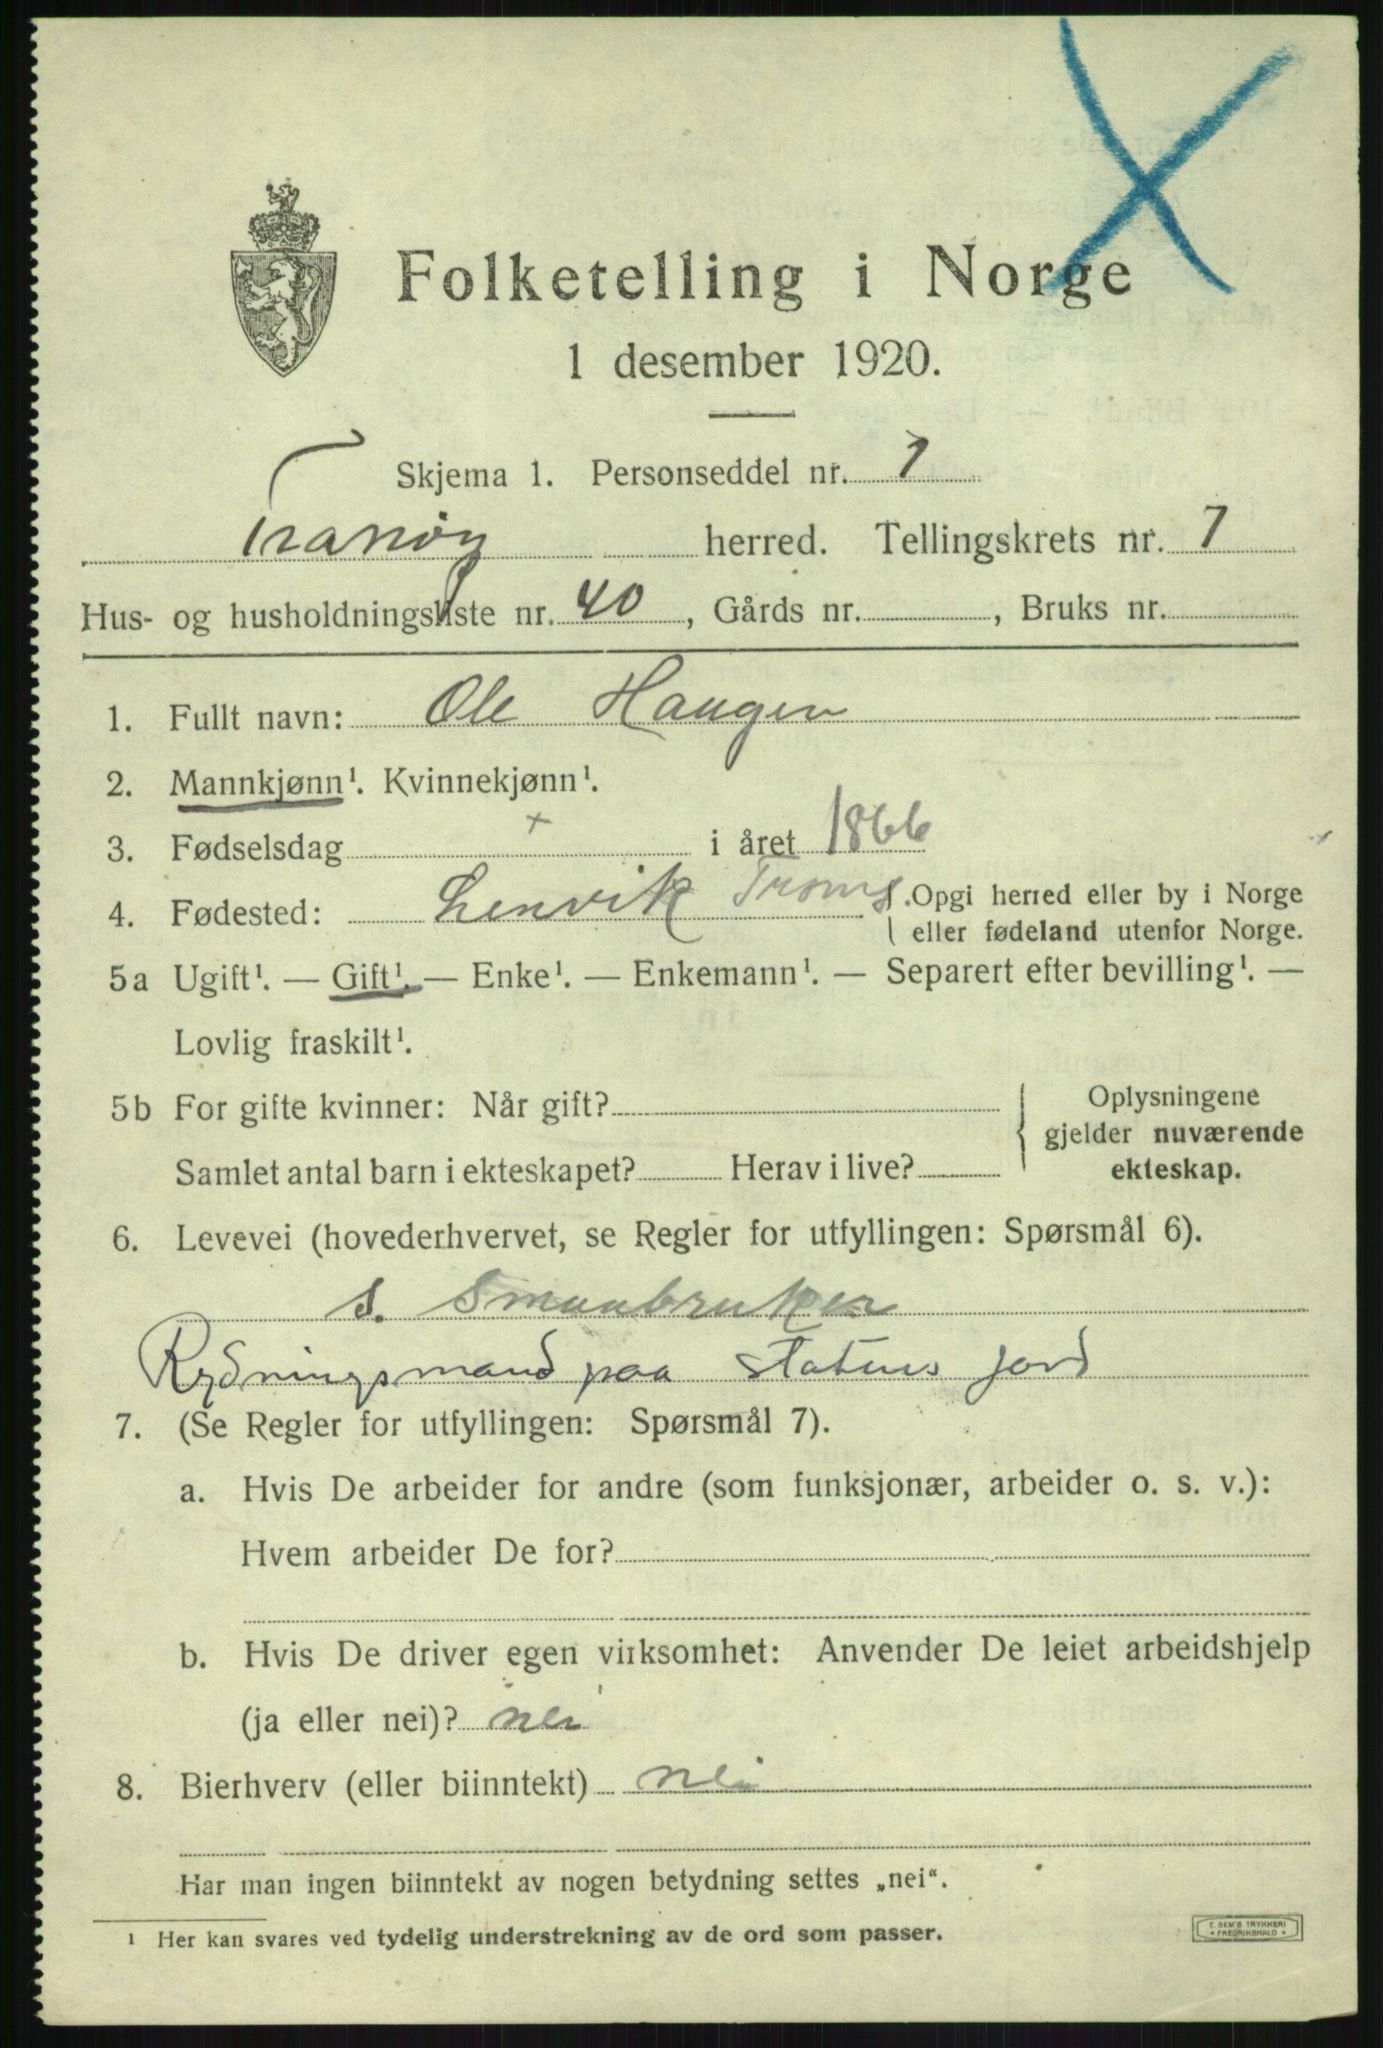 Folketelling i Norge
1 desember 1920.
Skjema 1. Personseddel nr. 1
Tranöy herred. Tellingskrets nr. 7
Hus- og husholdningsliste nr. 40, Gårds nr. , Bruks nr.
1. Fullt navn: Ole Haugen
2. Mannkjønn¹. Kvinnekjønn¹.
3. Fødselsdag + i året 1866
4. Fødested: Lenvik Troms { Opgi herred eller by i Norge
eller fødeland utenfor Norge.
5a Ugift¹. — Gift¹. — Enke¹. — Enkemann¹. — Separert efter bevilling¹. —
Lovlig fraskilt¹.
5b For gifte kvinner: Når gift?
Samlet antal barn i ekteskapet? Herav i live?
Oplysningene
gjelder nuværende
ekteskap.
6. Levevei (hovederhvervet, se Regler for utfyllingen: Spørsmål 6).
s. Smaabruker
Rydningsmand paa statens jord
7. (Se Regler for utfyllingen: Spørsmål 7).
a. Hvis De arbeider for andre (som funksjonær, arbeider o. s. v.):
Hvem arbeider De for?
b. Hvis De driver egen virksomhet: Anvender De leiet arbeidshjelp
(ja eller nei)? nei
8. Bierhverv (eller biinntekt) nei
Har man ingen biinntekt av nogen betydning settes „nei“.
¹ Her kan svares ved tydelig understrekning av de ord som passer.
E. SEM'S TRYKKERI
FREDRIKSHALD